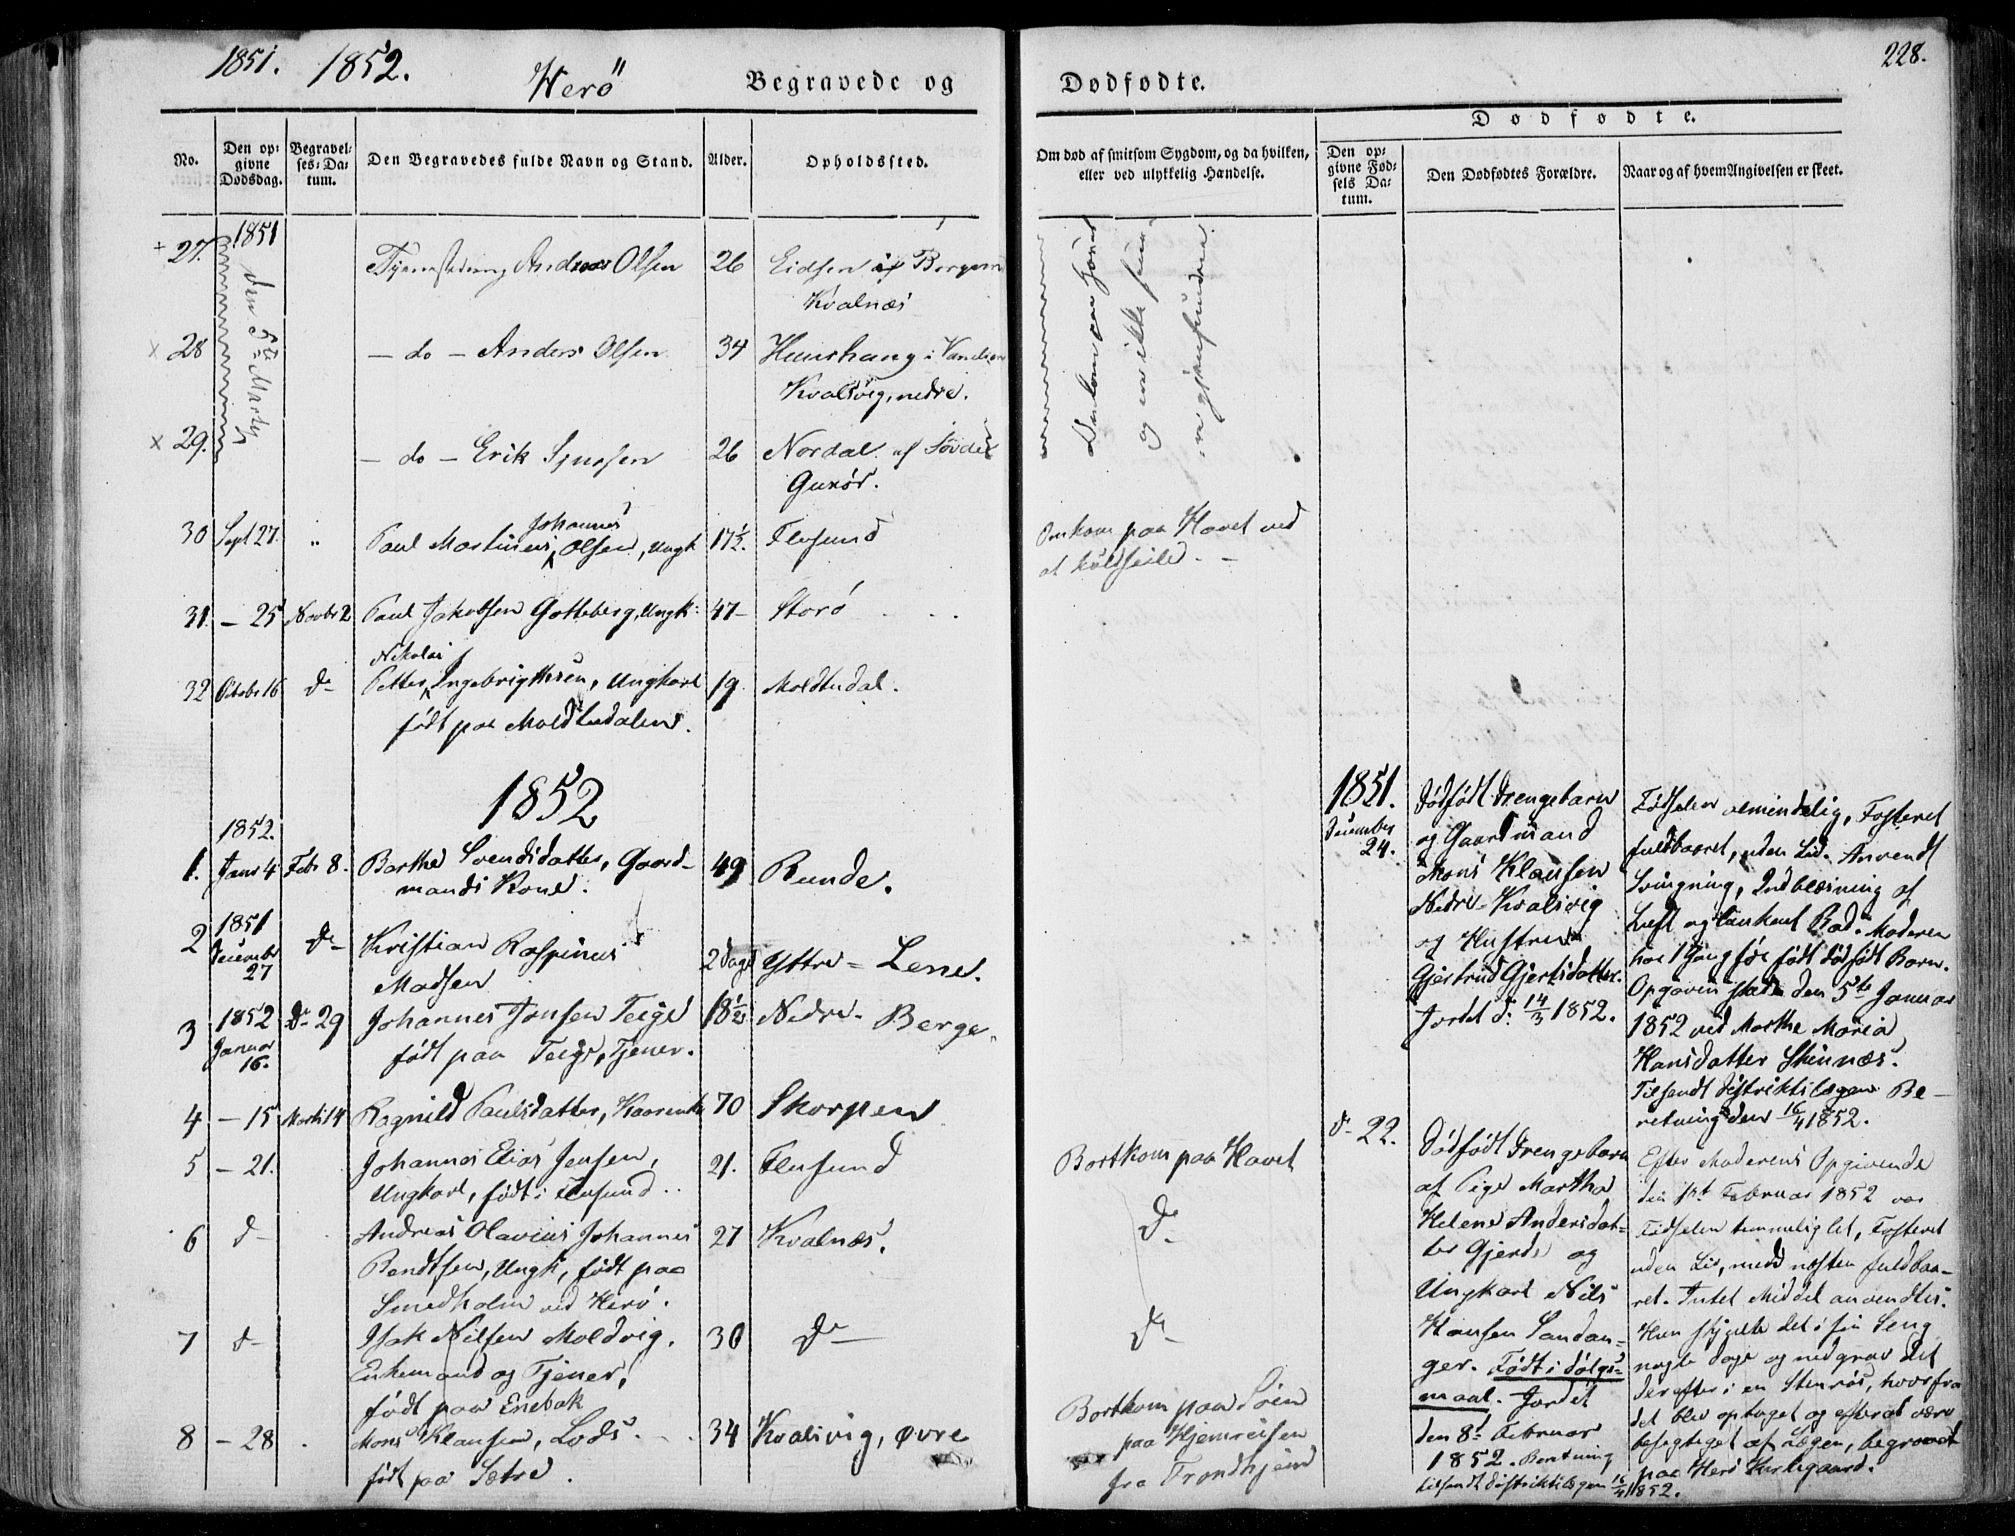 1851. 1852.
Herö
Begravede og
Dødfødte.
228.
No.
Den op-
givne
Dødsdag.
Begravel-
ses-Da-
tum.
Den Begravedes fulde Navn og Stand.
Alder.
Opholdssted.
Om død af smitsom Sygdom, og da hvilken,
eller ved ulykkelig Hændelse.
Dødfødte.
Den op-
givne Fød-
sels Da-
tum.
Den Dødfødtes Forældre.
Naar og af hvem Angivelsen er skeet.
1851
den 5te Marts
27. Andreas Olsen 26
Kvalnæs
28 - do - Anders Olsen 34
Kvalsvig, nedre.
29. - do - Erik 26 Nordal af
Gurør.
og ere ikke
igjenfundne.
30 Sept 27. " Paul Martinus Johannes Olsen, Ungk 17½. Flusund
Omkom paa Havet ved
at kuldseile. -
31. - 25 Novbr 2 Paul Jakobsen Gotteberg, Ungk: 47 - Storö
32 Octobr 16 do Petter Nikolai Ingebrigtsen, Ungkarl 19. Moldtudal.
født paa Moldtudalen.
1852
1852.
1. Janr 4 Febr 8. Barthe Svendsdatter, Gaard-
mands Kone. 49 Runde.
2 1851 December 27 do Kristian Raspinus
Madsen 2 Dage Yttre - Lene.
3 1852 Januar 16. do 29 Johannes Jonsen Teige
født paa Teige, Tjener. 18½ Nedre - Berge.
4 - 15 Marts 14 Ragnild Paulsdatter, 70 Skorpen
5 - 21. Johannes Elias Jensen,
Ungkarl, født i Flusund.. 21. Flusund
Bortkom paa Havet
6 do Andreas Olavius Johannes
Bendtsen, Ungk, født paa
Smedholm ved Herö. 27 Kvalnæs.
do
7 do Isak Nilsen Moldvig.
Enkemand og Tjener,
født paa Enebak 30 do
do
8 - 28 . Mons Klausen, Lods.
født paa Sætre. 34 Kvalsvig, øvre
Bortkom paa Søen
paa Hjemreisen
fra Trondhjem
1851.
December
24.
Dødfødt Drengebarn
og Gaardmand
Mons Klausen
Nedre-Kvalsvig
og Hustrue
Gjertrud Gjertsdatter.
Jordet d: 14/3 1852.
Fødselen almindelig, Fosteret
fuldbaaret, uden Liv. Anvendt
Svingning, Indblæsning af
Luft og lunkent Bad. Moderen
har 1 Gang før født dødfødt Barn.
Opgaven skede den 5te Januar
1852 ved Marthe Maria
Hansdatter Skinnæs.
Tilsendt Distriktslægen Be-
retning den 16/4 1852.
do 22.
Dødfødt Drengebarn
af Pige Martha
Helene Andersdat-
ter Gjerde og
Ungkarl Nils
Hansen Sandan-
ger. Født i Dølgs-
maal. Jordet
den 8de Februar
1852. Beretning
tilsendt Distriktslægen 16/4 1852.
Efter Moderens Opgivende
den 1st Februar 1852 var
Fødselen temmelig let, Fosteret
uden Liv, med næsten fuldbaa-
ret. Intet Middel anvendtes.
Hun skjulte det i sin Seng
nogle Dage og nedgrov det
derefter i en Stenrøs, hvorfra
det blev optaget og efter at være
besigtiget af Lægen, begravet
paa Herö Kirkegaard.